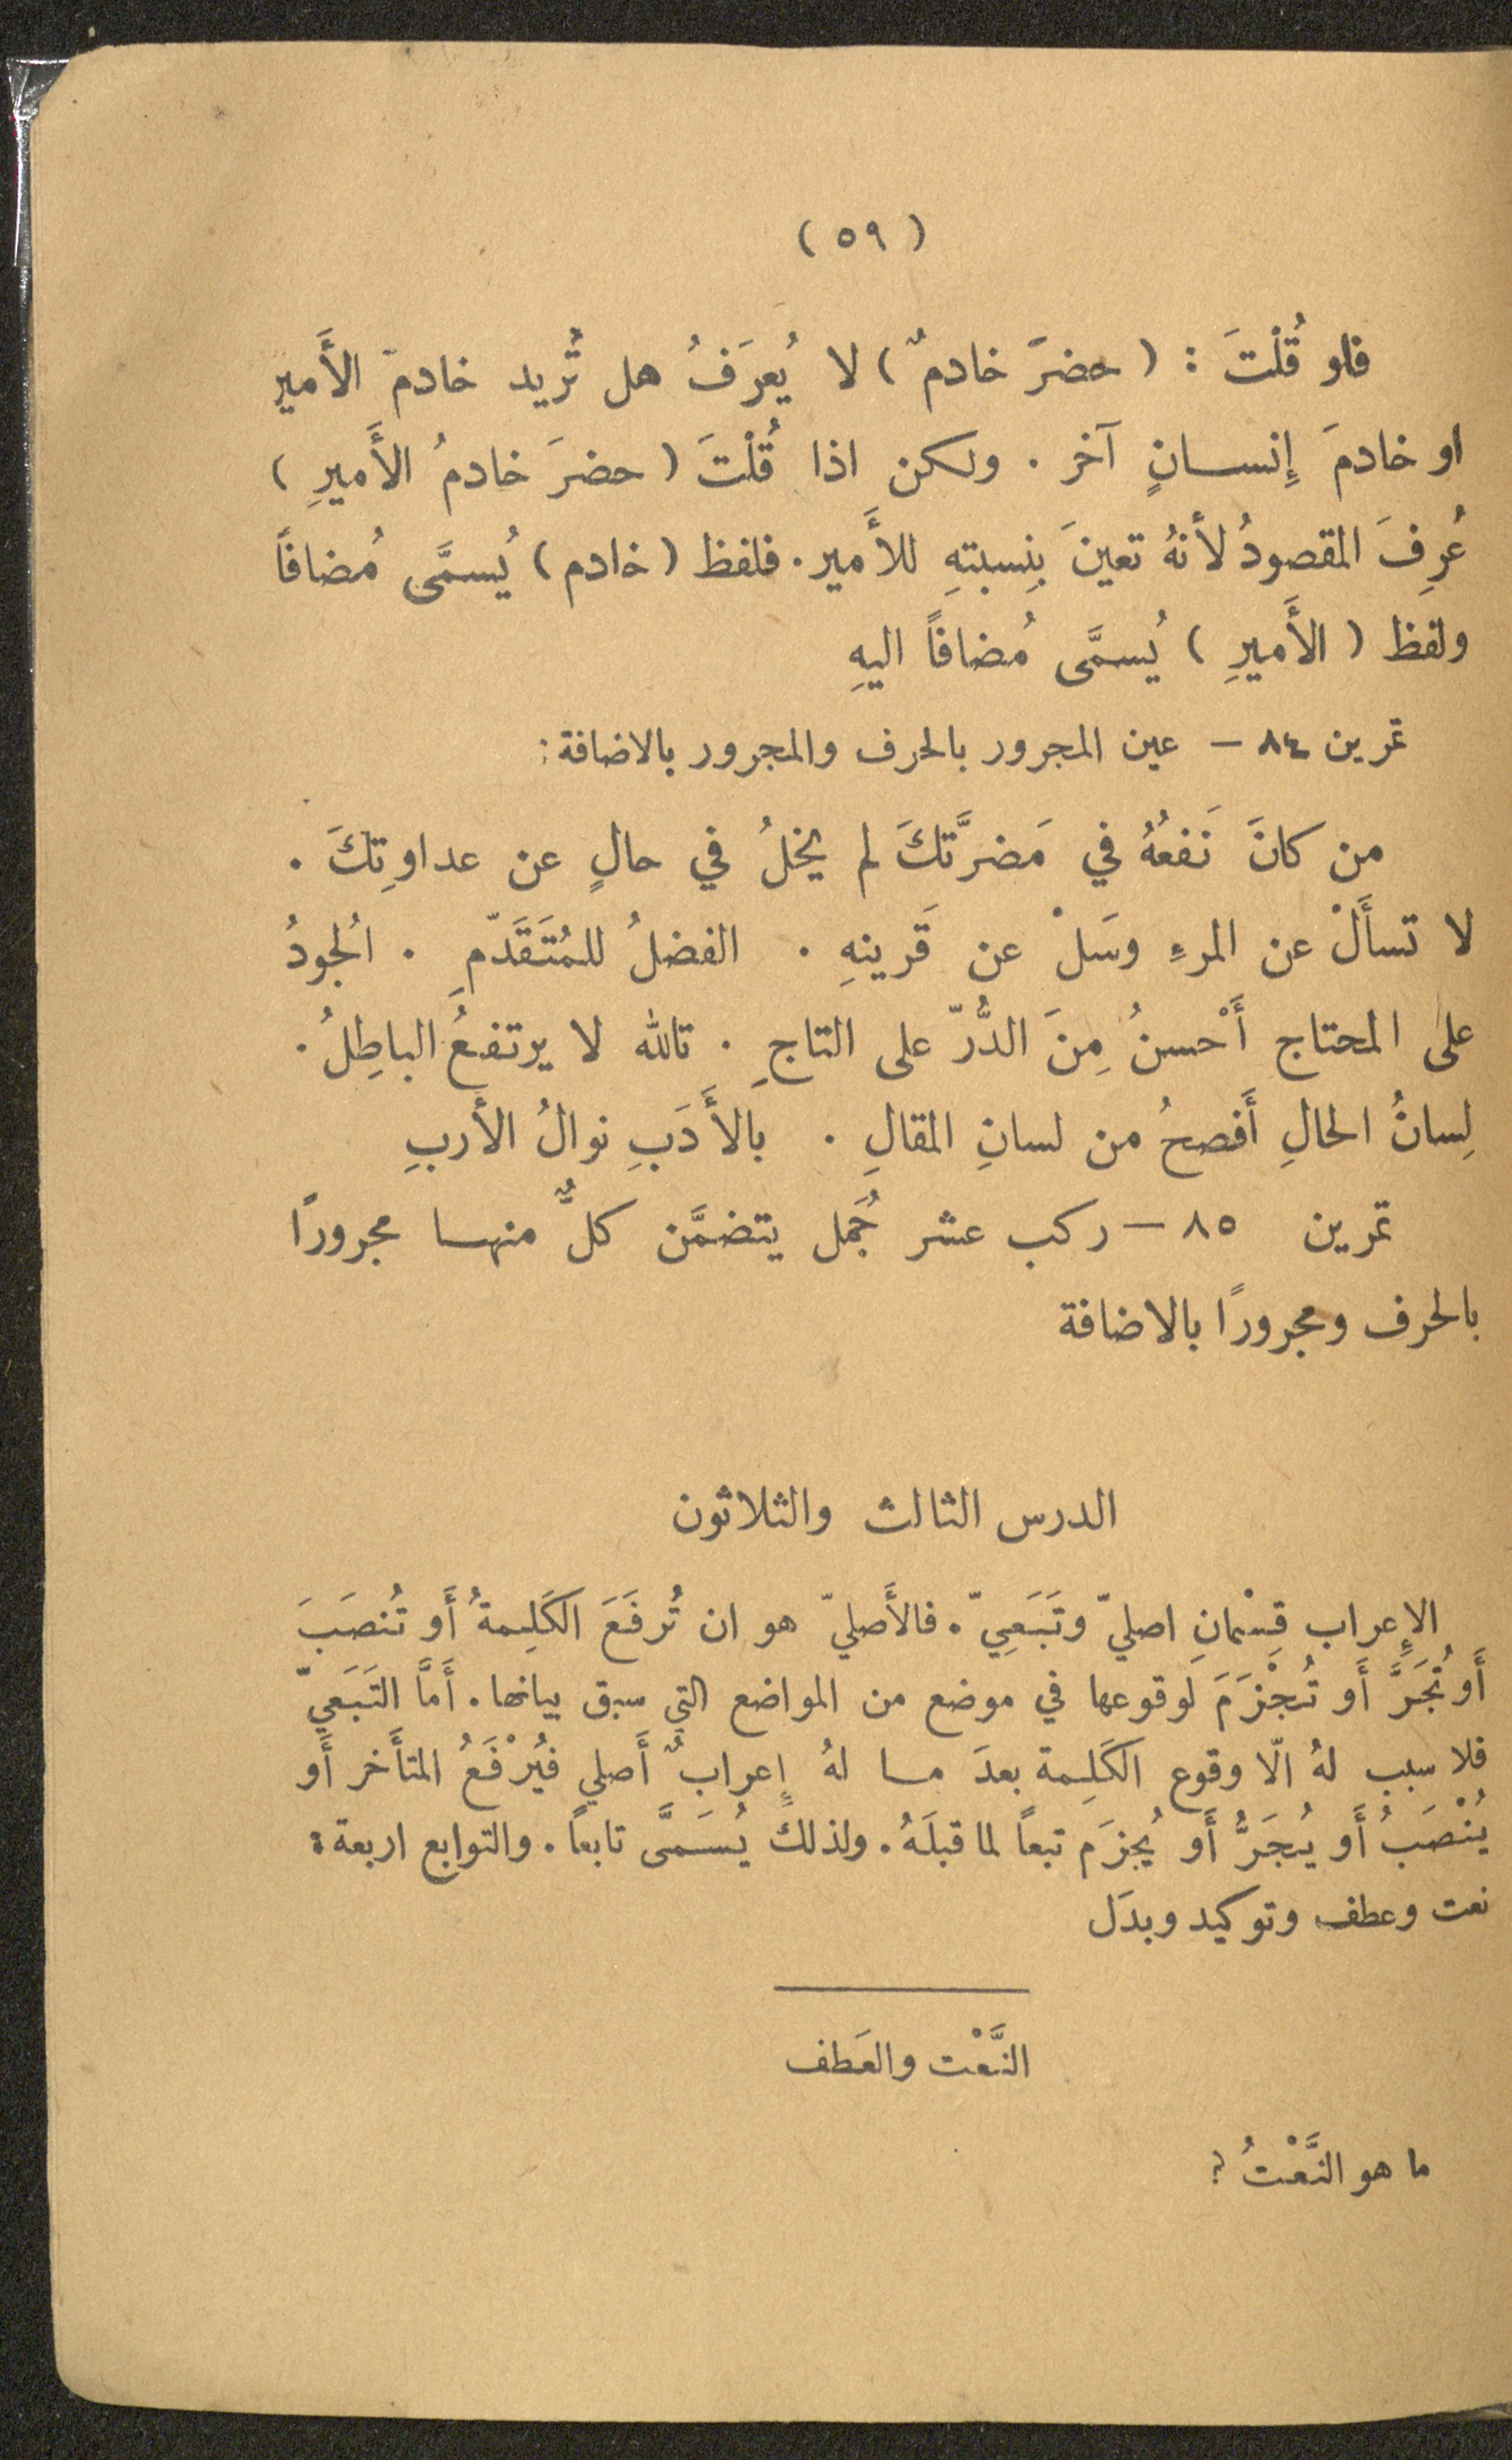 ( ٥٩ )
فلو قُلْتَ : ( حضرَ خادمٌ ) لا يُعرَفُ هل تُريد خادمَ الأَمير
او خادمَ إِنسانٍ آخر . ولكن اذا قُلْتَ ( حضرَ خادمُ الأَميرِ )
عُرِفَ المقصودُ لأنهُ تعينَ بِنِسبتهِ للأَمير . فلفظ ( خادم ) يُسمَّى مُضافاً
ولفظ ( الأَميرِ ) يُسمَّى مُضافاً اليهِ
تمرين ٨٤ — عين المجرور بالحرف والمجرور بالاضافة :
من كانَ نَفعُهُ في مَضرَّتكَ لم يخلُ في حالٍ عن عداوتِكَ .
لا تسأَلْ عن المرءِ وسَلْ عن قَرينهِ . الفضلُ للمُتَقَدّمِ . الُجودُ
على المحتاج أَحْسنُ مِنَ الدُّرّ على التاجِ . تالله لا يرتفعُ الباطِلُ .
لِسانُ الحالِ أَفصحُ من لسانِ المقالِ . بالأَدَبِ نوالُ الأربِ
تمرين ٨٥ — ركب عشر جُمَل يتضمَّن كلٌّ منها مجرورًا
بالحرف ومجرورًا بالاضافة
الدرس الثالث والثلاثون
الإِعراب قِسْمانِ اصليّ وتَبَعِيّ . فالأَصليّ هو ان تُرفَعَ الكَلِمةُ أَو تُنصَبَ
أَو تُجَرَّ أَو تُجْزَمَ لوقوعها في موضع من المواضع التي سبق بيانها . أَمَّا التَبَعَيّ
فلا سبب لهُ الّا وقوع الكَلِمة بعدَ ما لهُ إِعرابٌ أَصلي فيُرْفَعُ المتأَخر أَو
يُنْصَبُ أَو يُجَرُّ أَو يُجزَم تبعاً لما قبلَهُ . ولذلك يُسَمَّى تابعاً . والتوابع اربعة :
نعت وعطف وتوكيد وبدَل
النَّعْت والعَطف
ما هو النَّعْتُ ؟